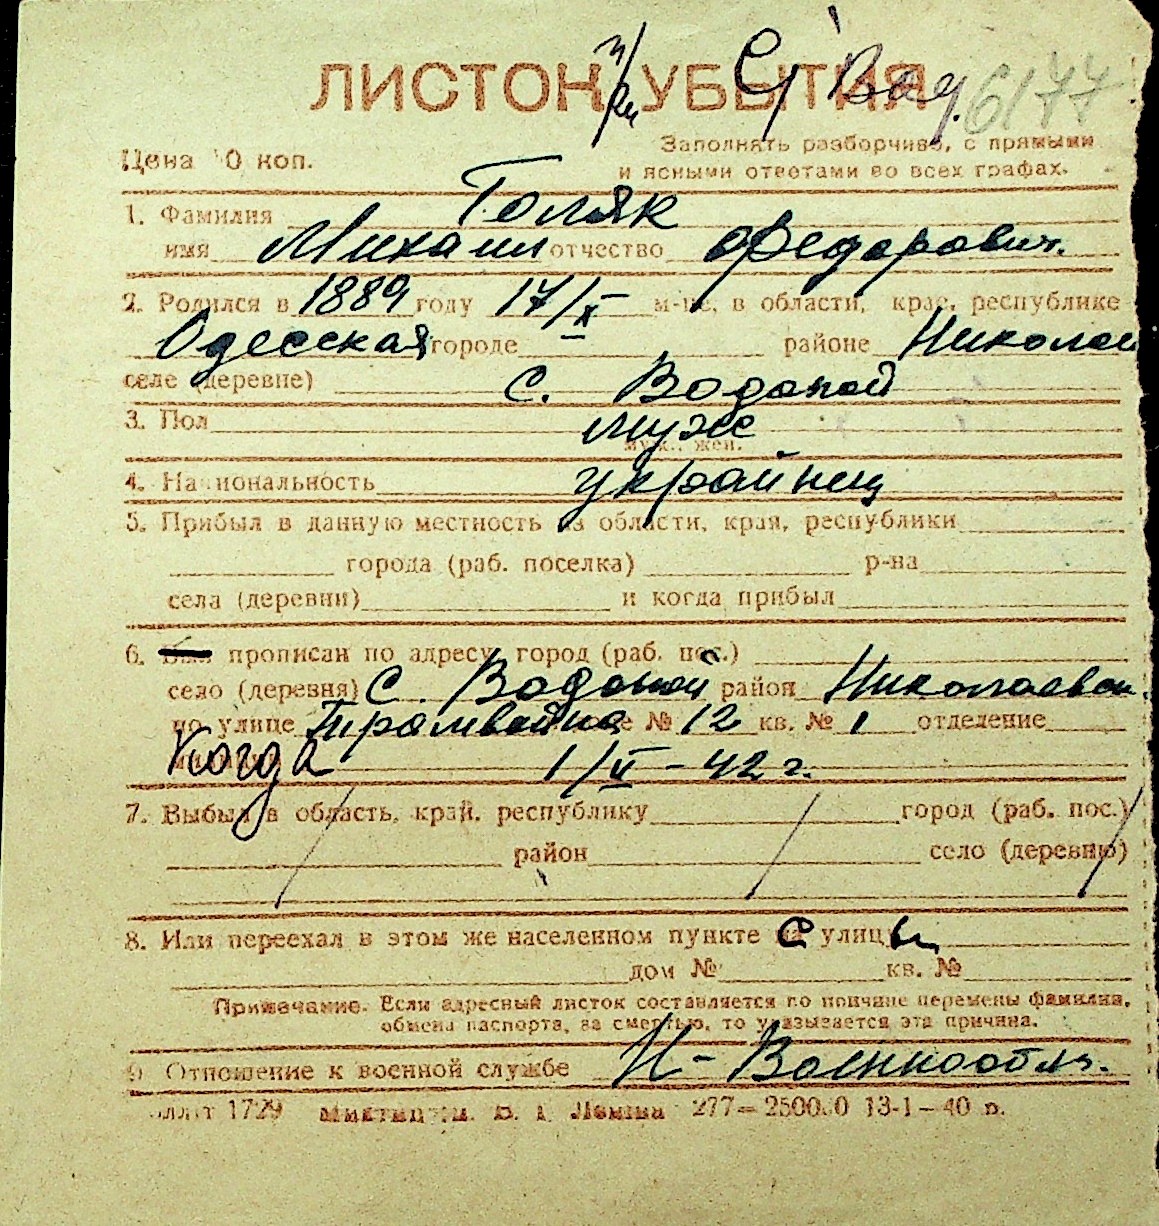 ЛИСТОК УБЫТИЯ
6177
Цена 10 коп.
Заполнять разборчиво, с прямыми
и ясными ответами во всех графах.
1. Фамилия Голяк
имя Михаил отчество Федорович.
2. Родился в 1889 году 17/X м-це, в области, крае, республике
Одесская городе — районе Николаев
селе (деревне) с. Водопой
3. Пол муж
муж., жен.
4. Национальность украйнец
5. Прибыл в данную местность из области, края, республики
города (раб. поселка) р-на
села (деревни) и когда прибыл
6. прописан по адресу, город (раб. пос.)
село (деревня) с. Водопой район Николаевск.
по улице Трамвайна № 12 кв. № 1 отделение
Когда 1/V - 42 г.
7. Выбыл в область, край, республику город (раб. пос.)
район село (деревню)
8. Или переехал в этом же населенном пункте с улицы
дом № кв. №
Примечание. Если адресный листок составляется по причине перемены фамилии,
обмена паспорта, за смертью, то указывается эта причина.
9. Отношение к военной службе Н-Военнообяз.
1729 277—250000 13-1—40 р.